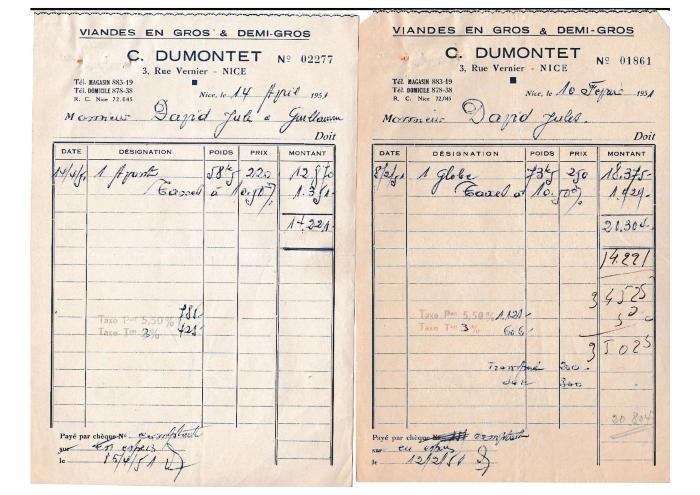 VIANDES EN GROS & DEMI-GROS
C. DUMONTET
Nº 02277
3, Rue Vernier - NICE
Tél. MAGASIN 883-19
Tél. DOMICILE 878-38
R. C. Nice 72.045
Nice, le 14 April 1951
Monsieur David Jules à
Doit
DATE DÉSIGNATION POIDS PRIX MONTANT
14/4/51 1 58kg 220 12.870
Taxes à 10.50% 1.351-
14.221
Taxe Pon 5,50% 781-
Taxe Ton 3% 425-
Payé par chèque Nº comptant
sur en espèces
le 15/4/51
VIANDES EN GROS & DEMI-GROS
C. DUMONTET
Nº 01861
3, Rue Vernier - NICE
Tél. MAGASIN 883-19
Tél. DOMICILE 878-38
R. C. Nice 72.045
Nice, le 10 1951
Monsieur David Jules.
Doit
DATE DÉSIGNATION POIDS PRIX MONTANT
8/2/51 1 Globe 73kg 250 18.375-
Taxes à 10.50% 1.929-
20.304-
14.221
34525
50
35025
Taxe Pon 5,50% 1.121-
Taxe Ton 3 606-
200-
300
20 804
Payé par chèque comptant
sur en espèces
le 12/2/51